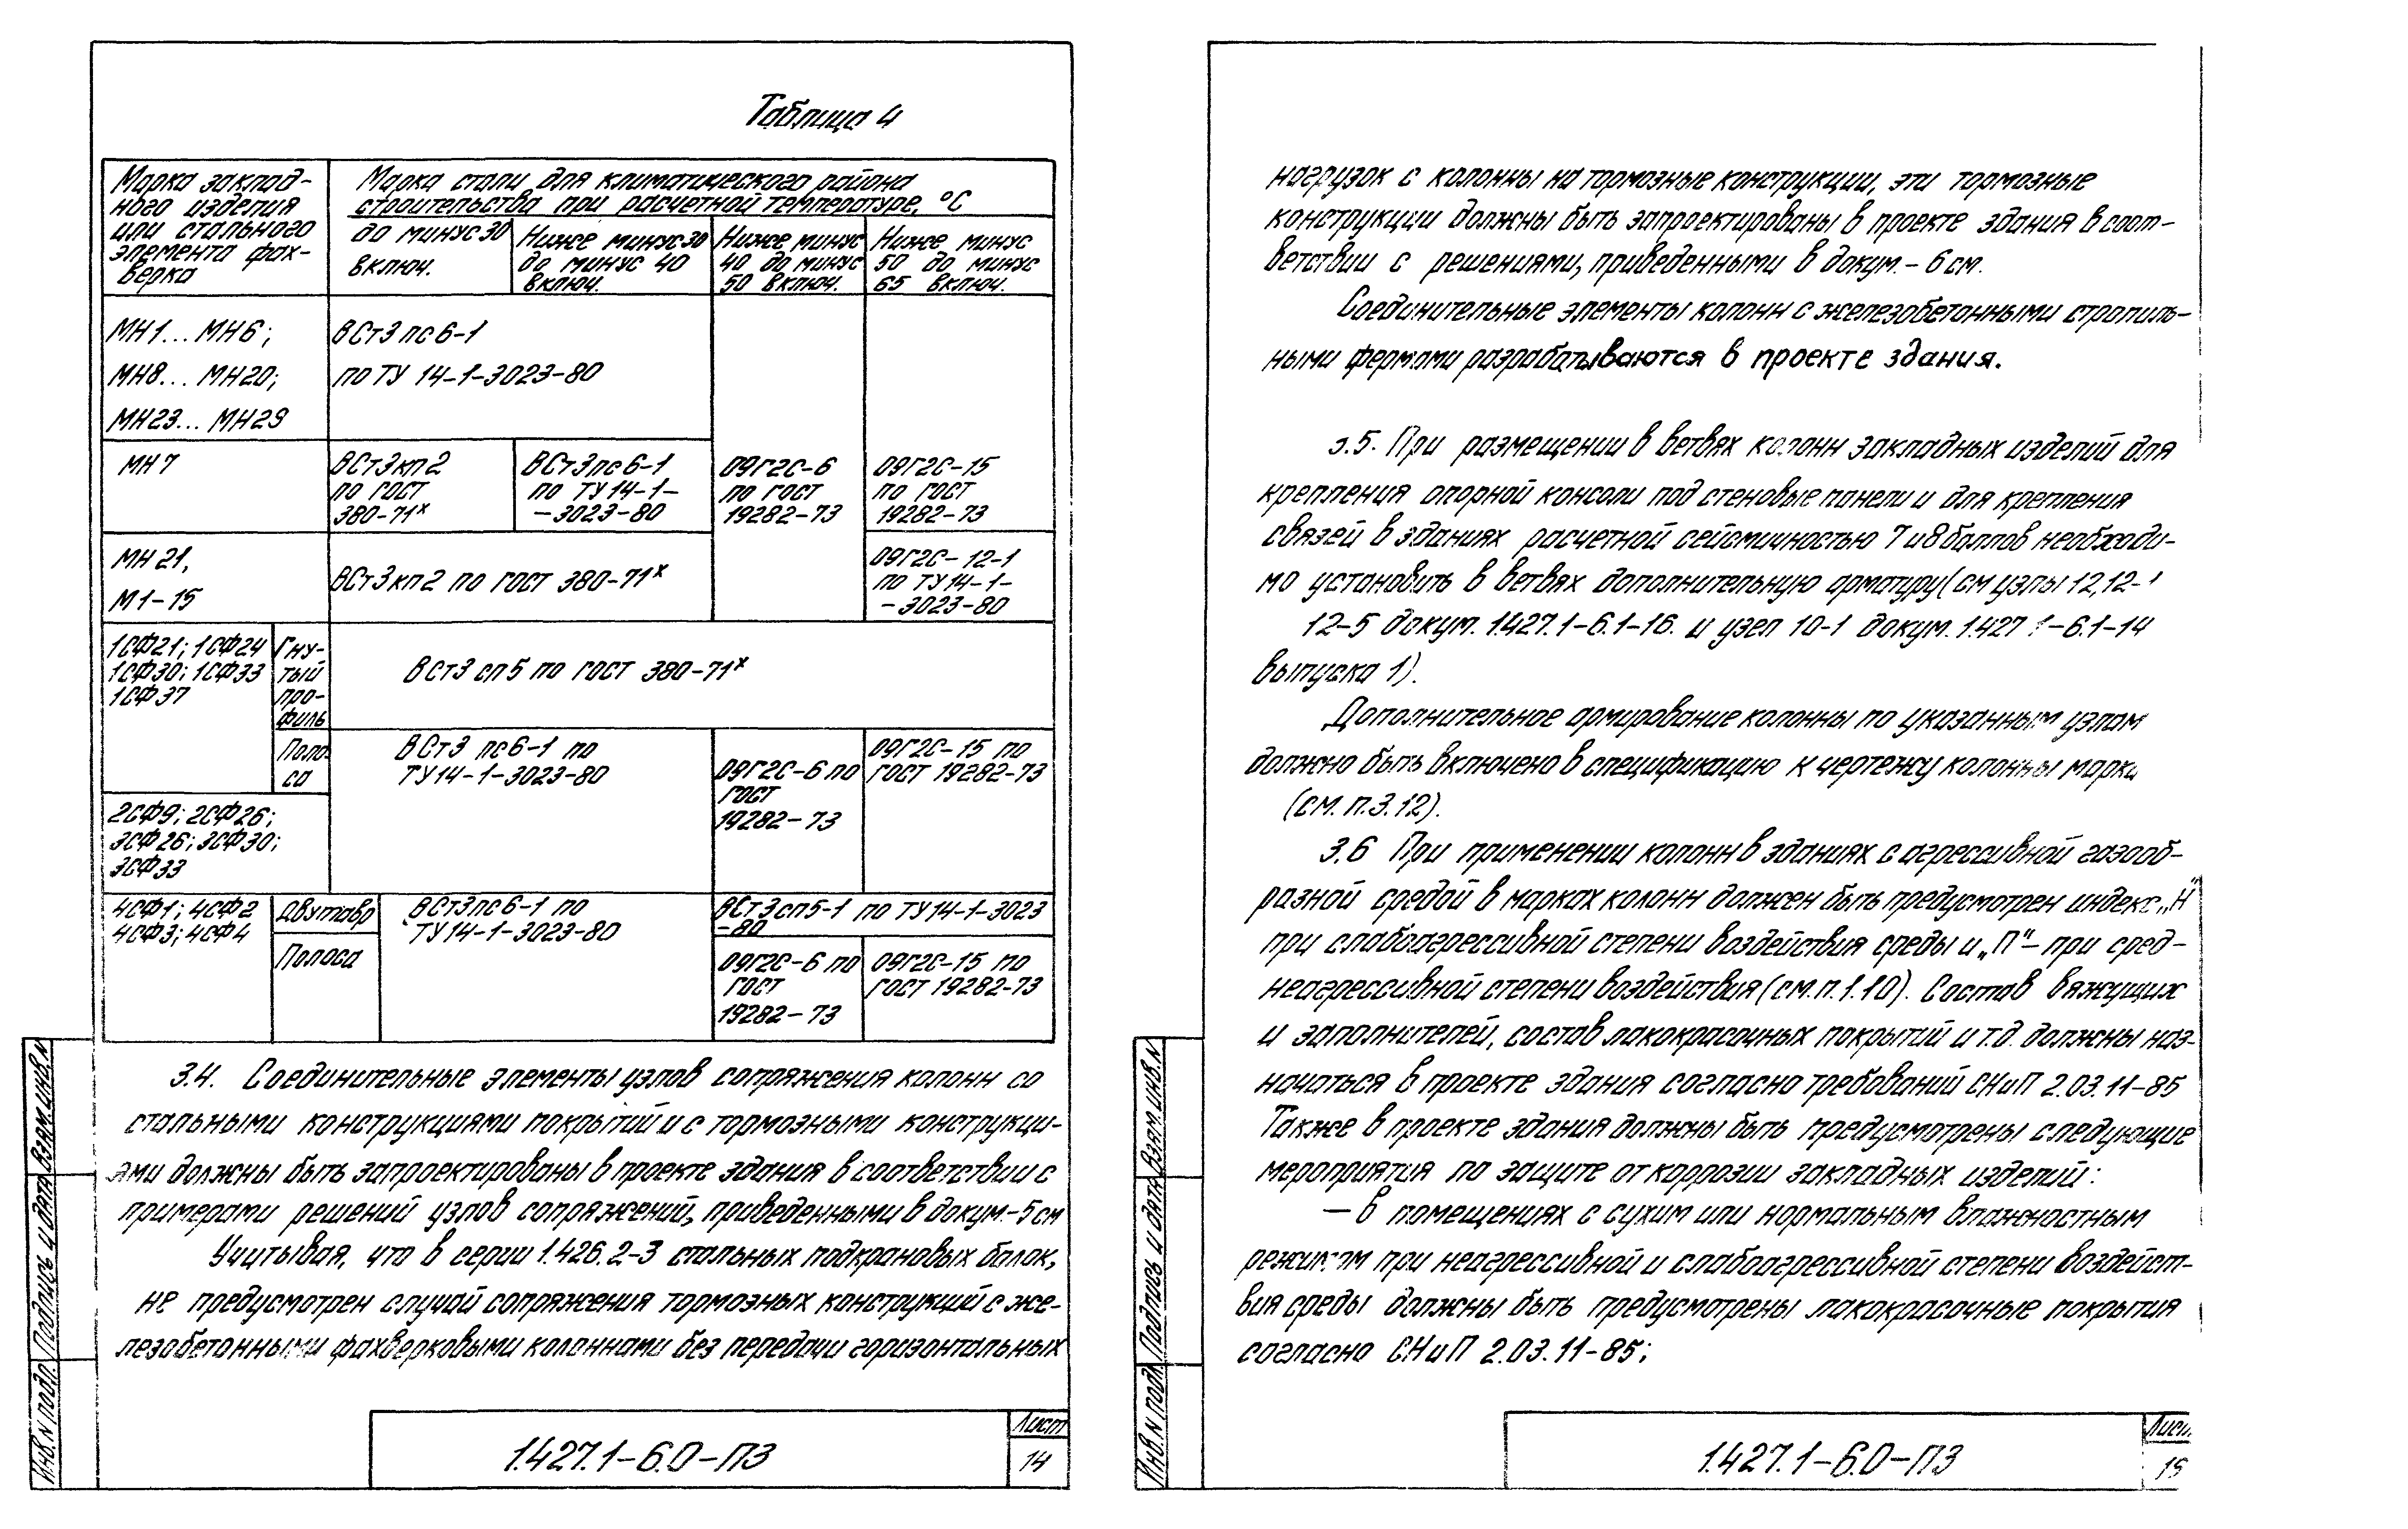 Таблица 4
Марка заклад-
ного изделия
или стального
элемента фах-
верка
Марка стали для климатического района
строительства при расчетной температуре, °С
до минус 30
включ.
Ниже минус 30
до минус 40
включ.
Ниже минус
40 до минус
50 включ.
Ниже минус
50 до минус
65 включ.
МН1... МН6;
МН8... МН20;
МН23... МН29
ВСт3пс6-1
по ТУ 14-1-3023-80
МН7
ВСт3кп2
по ГОСТ
380-71х
ВСт3пс6-1
по ТУ14-1-
-3023-80
09Г2С-6
по ГОСТ
19282-73
09Г2С-15
по ГОСТ
19282-73
МН21,
М1-15
ВСт3кп2 по ГОСТ 380-71х
09Г2С-12-1
по ТУ14-1-
-3023-80
1СФ21; 1СФ24
1СФ30; 1СФ33
1СФ37
Гну-
тый
про-
филь
ВСт3сп5 по ГОСТ 380-71х
Поло-
са
ВСт3 пс6-1 по
ТУ14-1-3023-80
09Г2С-6 по
ГОСТ
19282-73
09Г2С-15 по
ГОСТ 19282-73
2СФ9; 2СФ26;
3СФ26; 3СФ30;
3СФ33
4СФ1; 4СФ2
4СФ3; 4СФ4
Двутавр
ВСт3пс6-1 по
ТУ14-1-3023-80
ВСт3сп5-1 по ТУ14-1-3023
-80
Полоса
09Г2С-6 по
ГОСТ
19282-73
09Г2С-15 по
ГОСТ 19282-73
3.4. Соединительные элементы узлов сопряжения колонн со
стальными конструкциями покрытий и с тормозными конструкци-
ями должны быть запроектированы в проекте здания в соответствии с
примерами решений узлов сопряжений, приведенными в докум.-5см
Учитывая, что в серии 1.426.2-3 стальных подкрановых балок,
не предусмотрен случай сопряжения тормозных конструкций с же-
лезобетонными фахверковыми колоннами без передачи горизонтальных
Взам.инв.N
Подпись и дата
Инв.N подл.
1.427.1-6.0-ПЗ
Лист
14
нагрузок с колонны на тормозные конструкции, эти тормозные
конструкции должны быть запроектированы в проекте здания в соот-
ветствии с решениями, приведенными в докум.-6см.
Соединительные элементы колонн с железобетонными стропиль-
ными фермами разрабатываются в проекте здания.
3.5. При размещении в ветвях колонн закладных изделий для
крепления опорной консоли под стеновые панели и для крепления
связей в зданиях расчетной сейсмичностью 7 и 8 баллов необходи-
мо установить в ветвях дополнительную арматуру (см узлы 12, 12-1
12-5 докум. 1.427.1-6.1-16. и узел 10-1 докум. 1.427.1-6.1-14
выпуска 1).
Дополнительное армирование колонны по указанным узлам
должно быть включено в спецификацию к чертежу колонны марки
(см. п.3.12).
3.6 При применении колонн в зданиях с агрессивной газооб-
разной средой в марках колонн должен быть предусмотрен индекс „Н"
при слабоагрессивной степени воздействия среды и „П"- при сред-
неагрессивной степени воздействия (см.п.1.10). Состав вяжущих
и заполнителей, состав лакокрасочных покрытий и т.д. должны наз-
начаться в проекте здания согласно требований СНиП 2.03.11-85
Также в проекте здания должны быть предусмотрены следующие
мероприятия по защите от коррозии закладных изделий:
— в помещениях с сухим или нормальным влажностным
режимом при неагрессивной и слабоагрессивной степени воздейст-
вия среды должны быть предусмотрены лакокрасочные покрытия
согласно СНиП 2.03.11-85;
Взам.инв.N
Подпись и дата
Инв.N подл.
1.427.1-6.0-ПЗ
Лист
15